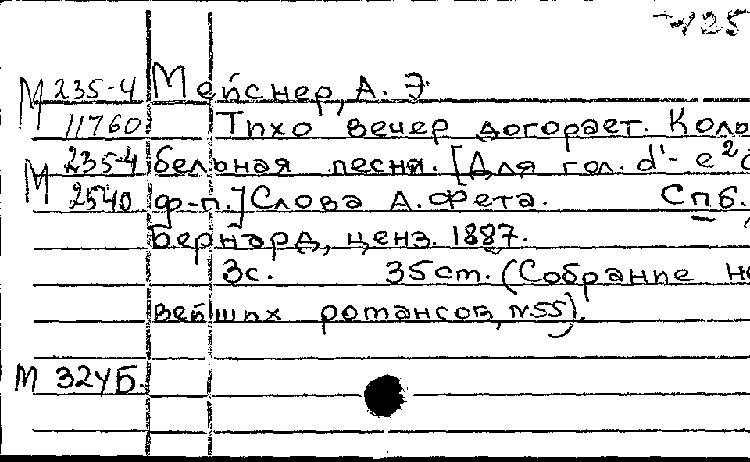 425
М 235-4 Мейснер, А. Э.
11760 Тихо вечер догорает. Колы
М 235-4 бельная песня. [Для гол. d'- e² с
2540 ф-п.] Слова А. Фета. Спб.
Бернард, ценз. 1887.
3с. 35cm. (Собрание но
вейших романсов, №55).
М 324Б.